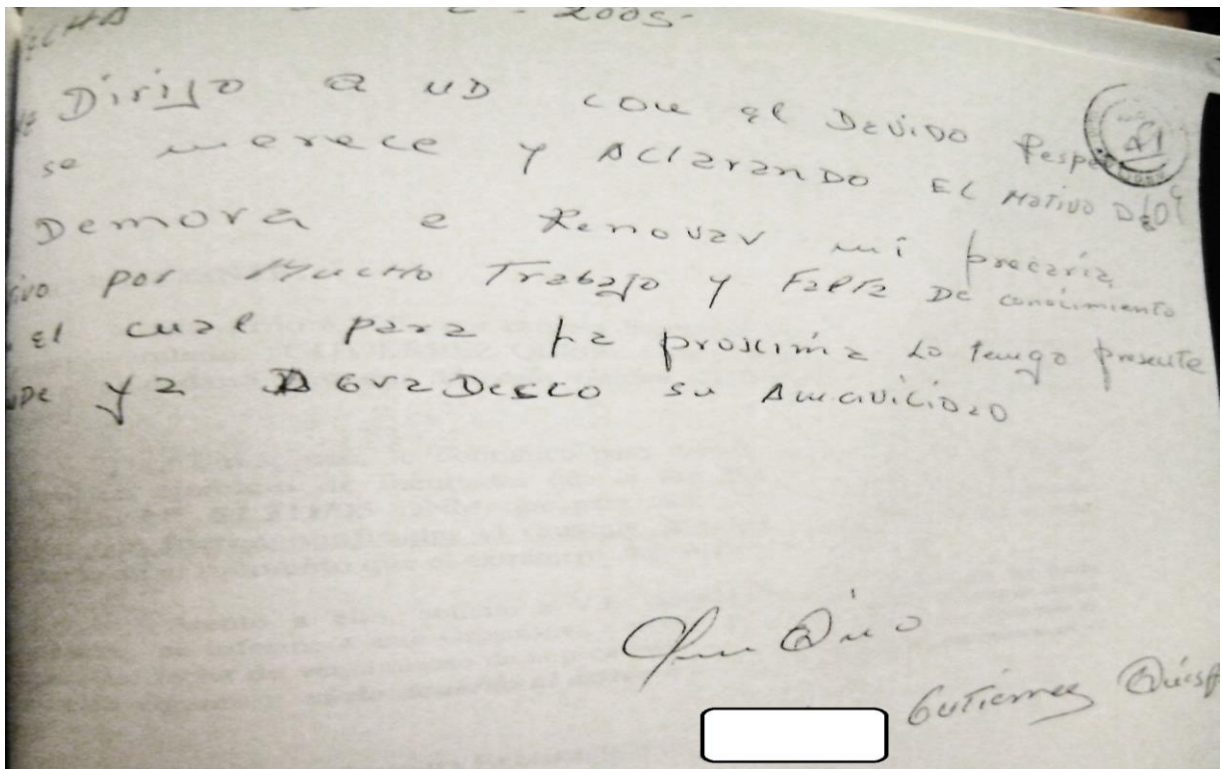 ECHA 2005-
Dirijo a UD con el Devido Respe
se merece y Aclarando EL Motivo De
Demora e Renovar mi precaria,
ivo por Mucho Trabajo y Falta De conocimiento
el cual para La proxima Lo tengo presente
ya AGraDesco su
Gutierrez Quisp